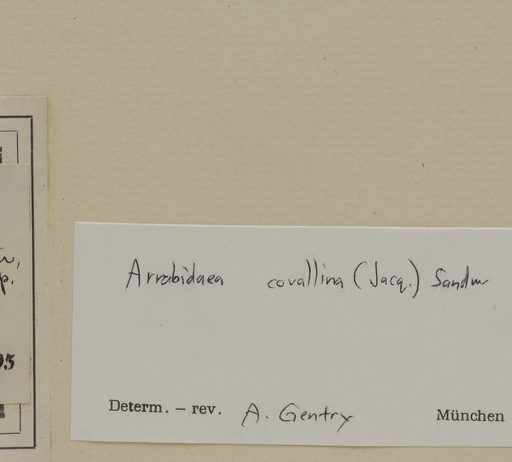 Arrabidaea covallina (Jacq.) Sandw
Determ. – rev. A. Gentry München
p.
95